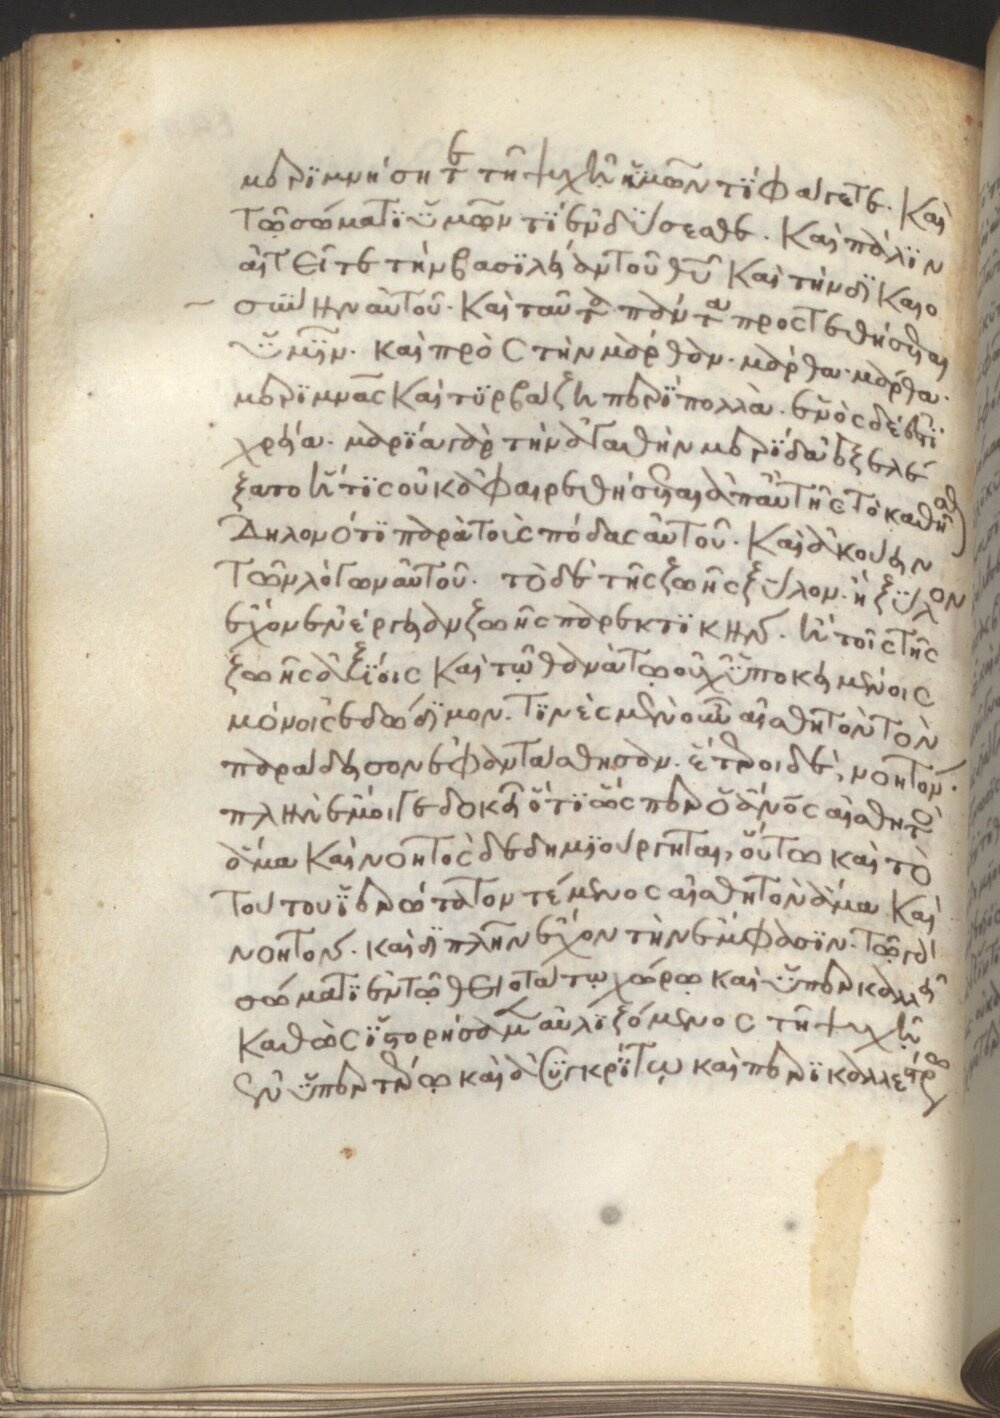 μεριμνήσητε τῆ ψυχῆ ἡμῶν τί φάγετε. Καὶ
τῶ σώματι ὑμῶν τί ἐνδύσεσθε. Καὶ πάλιν
αἰτεῖτε τὴν βασιλείαν τοῦ θυ Καὶ τὴν δικαιο
σύνην αὐτοῦ. Καὶ ταῦτα πάντα προστεθήσεται
ὑμῖν. καὶ πρὸς τὴν μάρθαν. μάρθα. μάρθα.
μεριμνᾶς Καὶ τυρβάζη περὶ πολλὰ. ἑνὸς δέ ἐστι
χρεία. μαρία γὰρ τὴν ἀγαθὴν μερίδα ἐξελέ
ξατο ἥτις οὐκ ἀφαιρεθήσεται ἀπ' αὐτῆς τὸ καθῆσθαι
Δηλονότι παρὰ τοῖς πόδας αὐτοῦ. Καὶ ἀκούειν
τῶν λόγων αὐτοῦ. τὸ δὲ τῆς ζωῆς ξύλον. ἢ ξύλον
ἔχον ἐνέργειαν ζωῆς παρεκτικὴν. ἢ τοῖς τῆς
ζωῆς ἀξίοις Καὶ τῶ θανάτω οὐχ ὑποκειμένοις
μόνοις ἐδώδιμον. τινὲς μὲν οὖν αἰσθητὸν τὸν
παράδεισον ἐφαντάσθησαν. ἕτεροι δὲ, νοητόν.
πλὴν ἔμοιγε δοκεῖ ὅτι ὥσπερ ὁ ἄνος αἰσθητὸς
ἅμα Καὶ νοητὸς δεδημιούργηται, οὕτω καὶ τὸ
τούτου ἱερώτατον τέμενος αἰσθητὸν ἅμα Καὶ
νοητὸν. καὶ διπλῆν ἔχον τὴν ἔμφασιν. τῶ γὰρ
σώματι ἐν τῶ θειοτάτω χώρω καὶ ὑπερκαλλεῖ
Καθὼς ἱστορήσαμεν αὐλιζόμενος τῆ ψυχῆ
ἐν ὑπερτέρω καὶ ἀσυγκρίτω καὶ περικαλλεστέρω